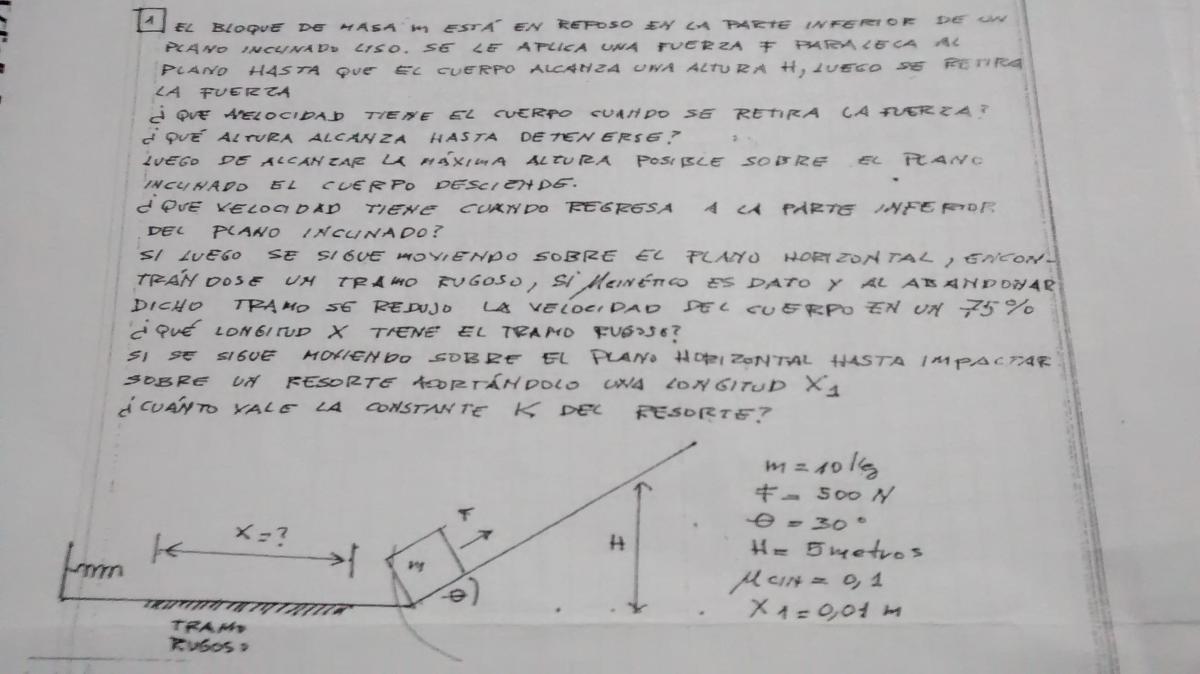 1 EL BLOQUE DE MASA m ESTÁ EN REPOSO EN LA PARTE INFERIOR DE UN
PLANO INCLINADO LISO. SE LE APLICA UNA FUERZA F PARALELA AL
PLANO HASTA QUE EL CUERPO ALCANZA UNA ALTURA H, LUEGO SE RETIRA
LA FUERZA
¿QUE VELOCIDAD TIENE EL CUERPO CUANDO SE RETIRA LA FUERZA?
¿QUÉ ALTURA ALCANZA HASTA DETENERSE?
LUEGO DE ALCANZAR LA MÁXIMA ALTURA POSIBLE SOBRE EL PLANO
INCLINADO EL CUERPO DESCIENDE.
¿QUE VELOCIDAD TIENE CUANDO REGRESA A LA PARTE INFERIOR
DEL PLANO INCLINADO?
SI LUEGO SE SIGUE MOVIENDO SOBRE EL PLANO HORIZONTAL, ENCON-
TRÁNDOSE UN TRAMO RUGOSO, SI μCINÉTICO ES DATO Y AL ABANDONAR
DICHO TRAMO SE REDUJO LA VELOCIDAD DEL CUERPO EN UN 75%
¿QUÉ LONGITUD X TIENE EL TRAMO RUGOSO?
SI SE SIGUE MOVIENDO SOBRE EL PLANO HORIZONTAL HASTA IMPACTAR
SOBRE UN RESORTE ACORTÁNDOLO UNA LONGITUD X1
¿CUÁNTO VALE LA CONSTANTE K DEL RESORTE?
X=?
m
F
θ
H
TRAMO
RUGOSO
m = 10 kg
F = 500 N
θ = 30°
H = 5 metros
μCIN = 0,1
X1 = 0,01 m